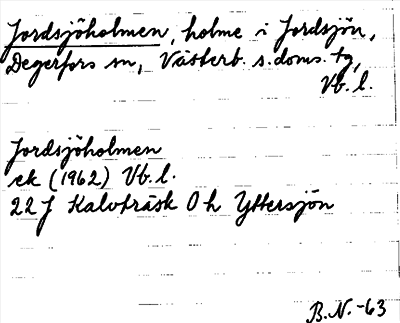 Jordsjöholmen, holme i Jordsjön,
Degerfors sn, Västerb. s. doms. tg,
Vb. l.
Jordsjöholmen
ek (1962) Vb. l.
22 J Kalvträsk 0 h Yttersjön
B.N. -63